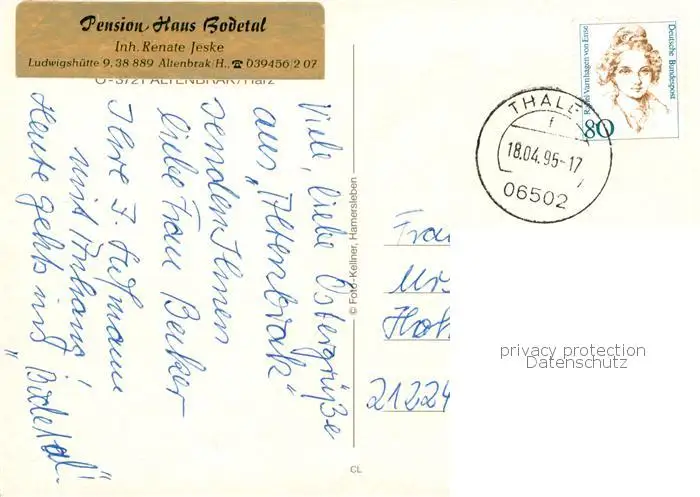 Pension Haus Bodetal
Inh. Renate Jeske
Ludwigshütte 9, 38 889 Altenbrak/H., ☎ 039456/2 07
O-3721 ALTENBRAK/Harz
Viele, liebe Ostergrüße
aus „Altenbrak“
senden Ihnen
liebe Frau Becker
Ihre F.
mit Anhang!
Heute gehts ins „Bodetal“!
© Foto-Kellner, Hamersleben
CL
THALE
f
18.04.95-17
06502
Rahel Varnhagen von Ense
Deutsche Bundespost
80
Frau
21224
privacy protection
Datenschutz